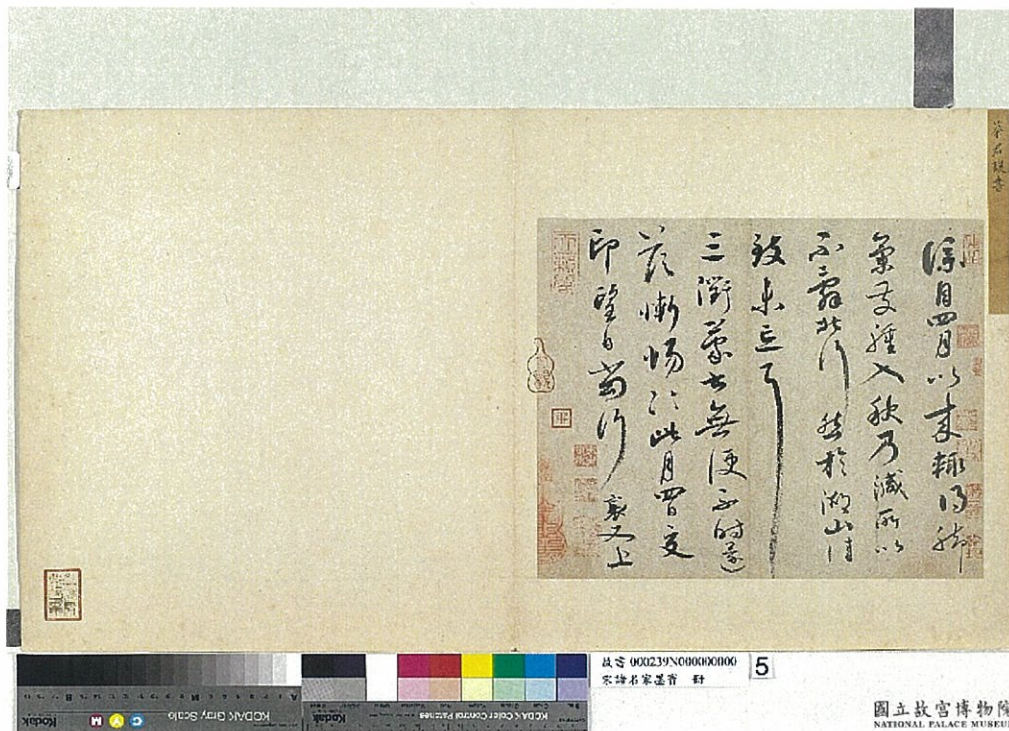 蔡君謨書
僕自四月以來輒得腳
氣發腫入秋乃減所以
不辭北行然於湖山清
致未忘耳
三衢蒙書無便不時還
答慚惕〻此月四日交
印望日當行襄又上
Kodak
C Y M
KODAK Gray Scale
Kodak
KODAK Color Control Patches
故書 000239N000000000
宋諸名家墨寶 冊
5
國立故宮博物院
NATIONAL PALACE MUSEUM